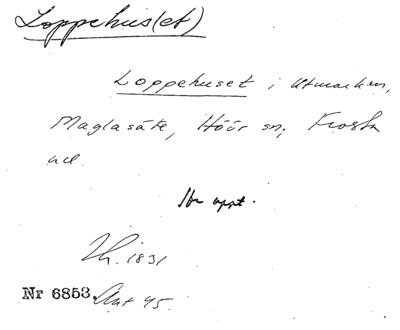 Loppehus(et)
Loppehuset i utmarken,
Maglasäte, Höör sn, Frosta
hd.
uppt.
1831
Nr 6853 45.